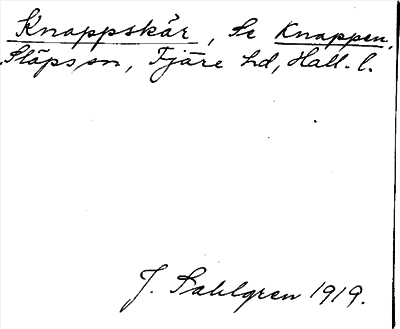 Knappskär, Se Knappen,
Släps sn, Fjäre hd, Hall. l.
J. Sahlgren 1919.